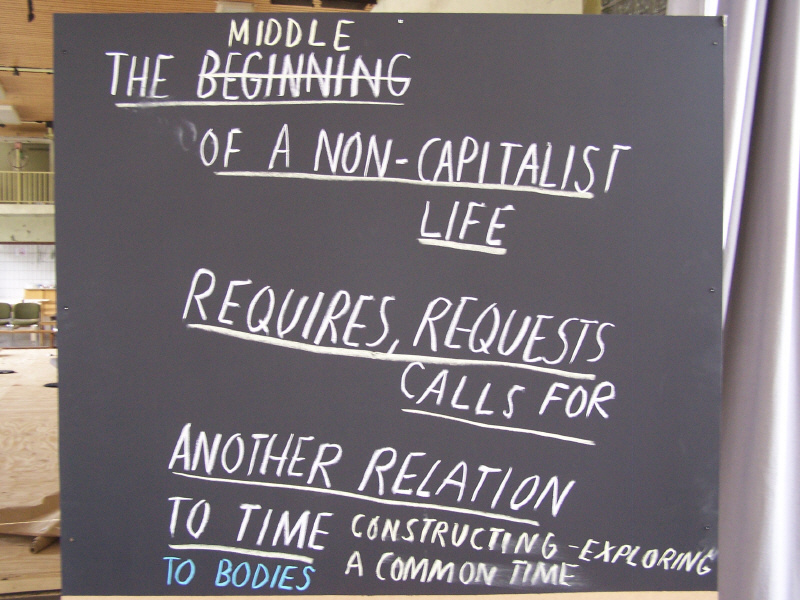 MIDDLE
THE BEGINNING
OF A NON-CAPITALIST
LIFE
REQUIRES, REQUESTS
CALLS FOR
ANOTHER RELATION
TO TIME CONSTRUCTING - EXPLORING
TO BODIES A COMMON TIME